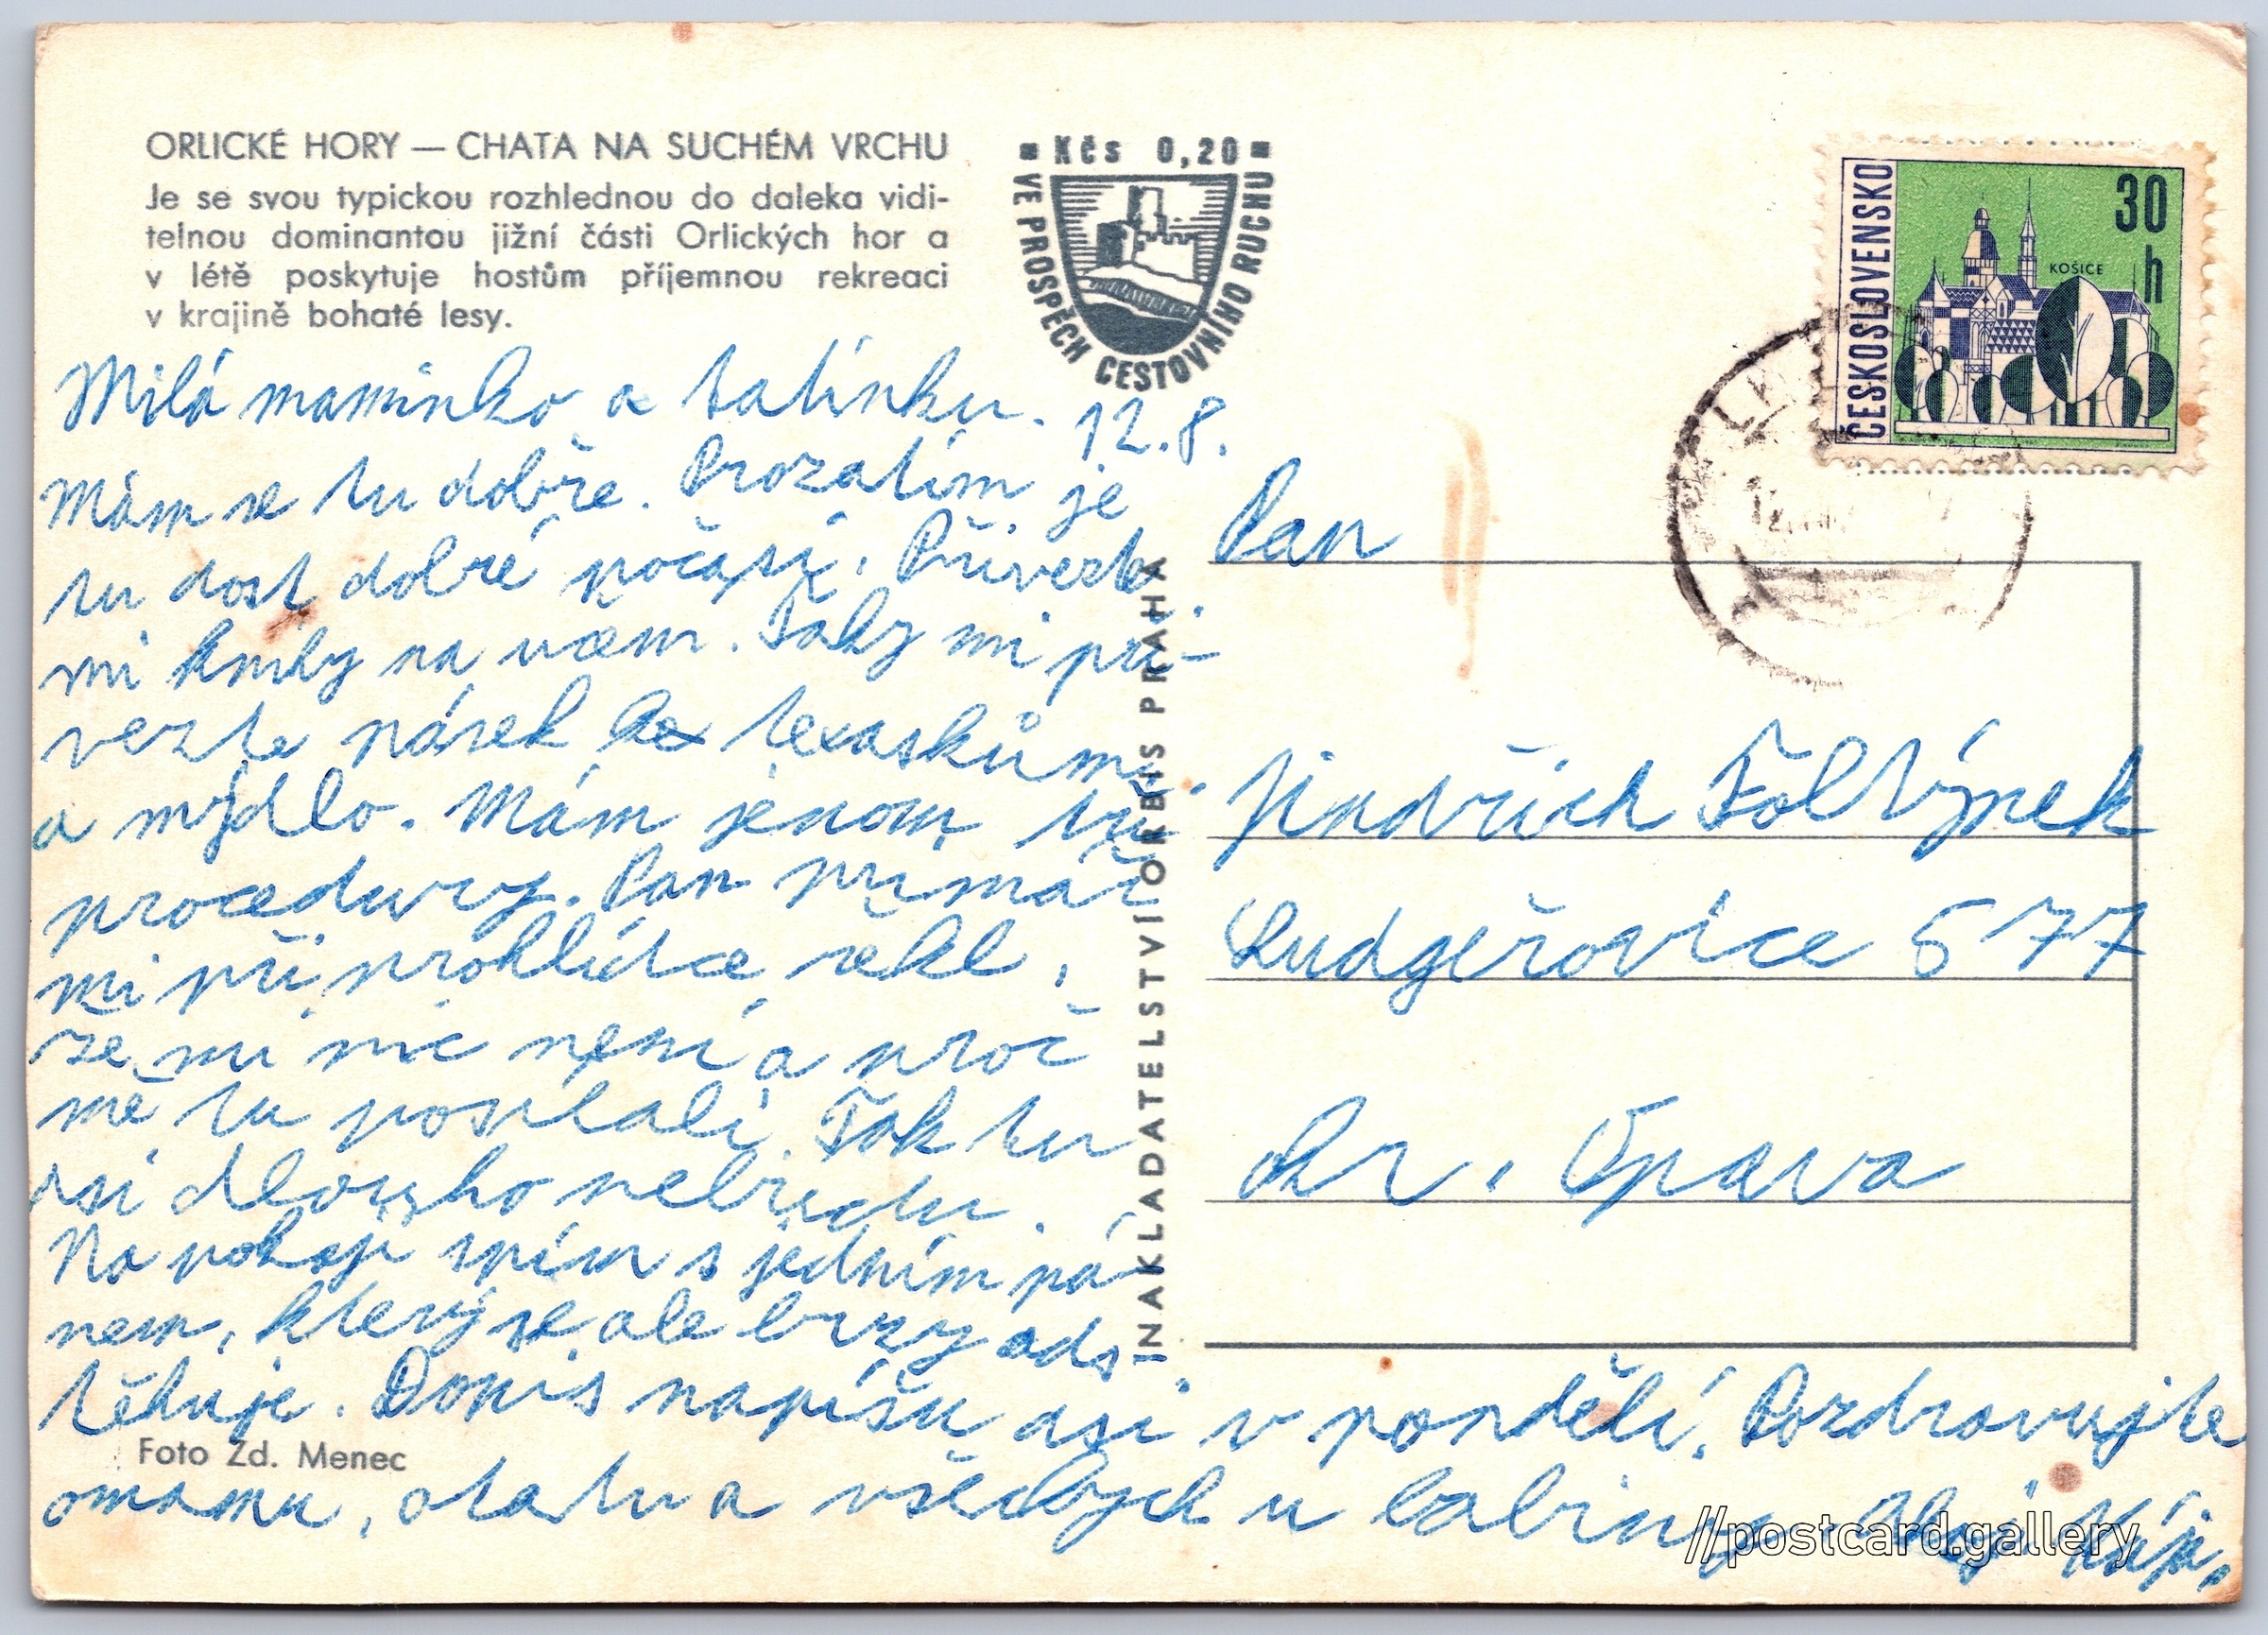 ORLICKÉ HORY — CHATA NA SUCHÉM VRCHU
Je se svou typickou rozhlednou do daleka vidi-
telnou dominantou jižní části Orlických hor a
v létě poskytuje hostům příjemnou rekreaci
v krajině bohaté lesy.
Kčs 0,20
VE PROSPĚCH CESTOVNÍHO RUCHU
ČESKOSLOVENSKO
30
h
KOŠICE
Milá maminko a tatínku. 12.8.
Mám se tu dobře. Prozatím je
tu dost dobré počasí. Přivezte
mi knihy na učení. Taky mi při-
vezte pásek texaskům
a mýdlo. Mám jenom tři
procedury. Pan primář
mi při prohlídce řekl,
že mi nic není a proč
mě tu poslali. Tak tu
asi dlouho nebudu.
Na pokoji spím s jedním pá-
nem, který se ale brzy ods-
těhuje. Dopis napíšu asi v pondělí. Pozdravujte
omamu, otatu a všechny u
Foto Zd. Menec
NAKLADATELSTVÍ ORBIS PRAHA
Pan
Jindřich Foltýnek
Ludgeřovice 577
Okr. Opava
//postcard.gallery